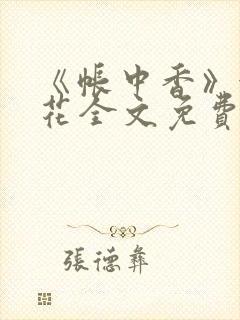 《帐中香》
花全文免費
張德彝